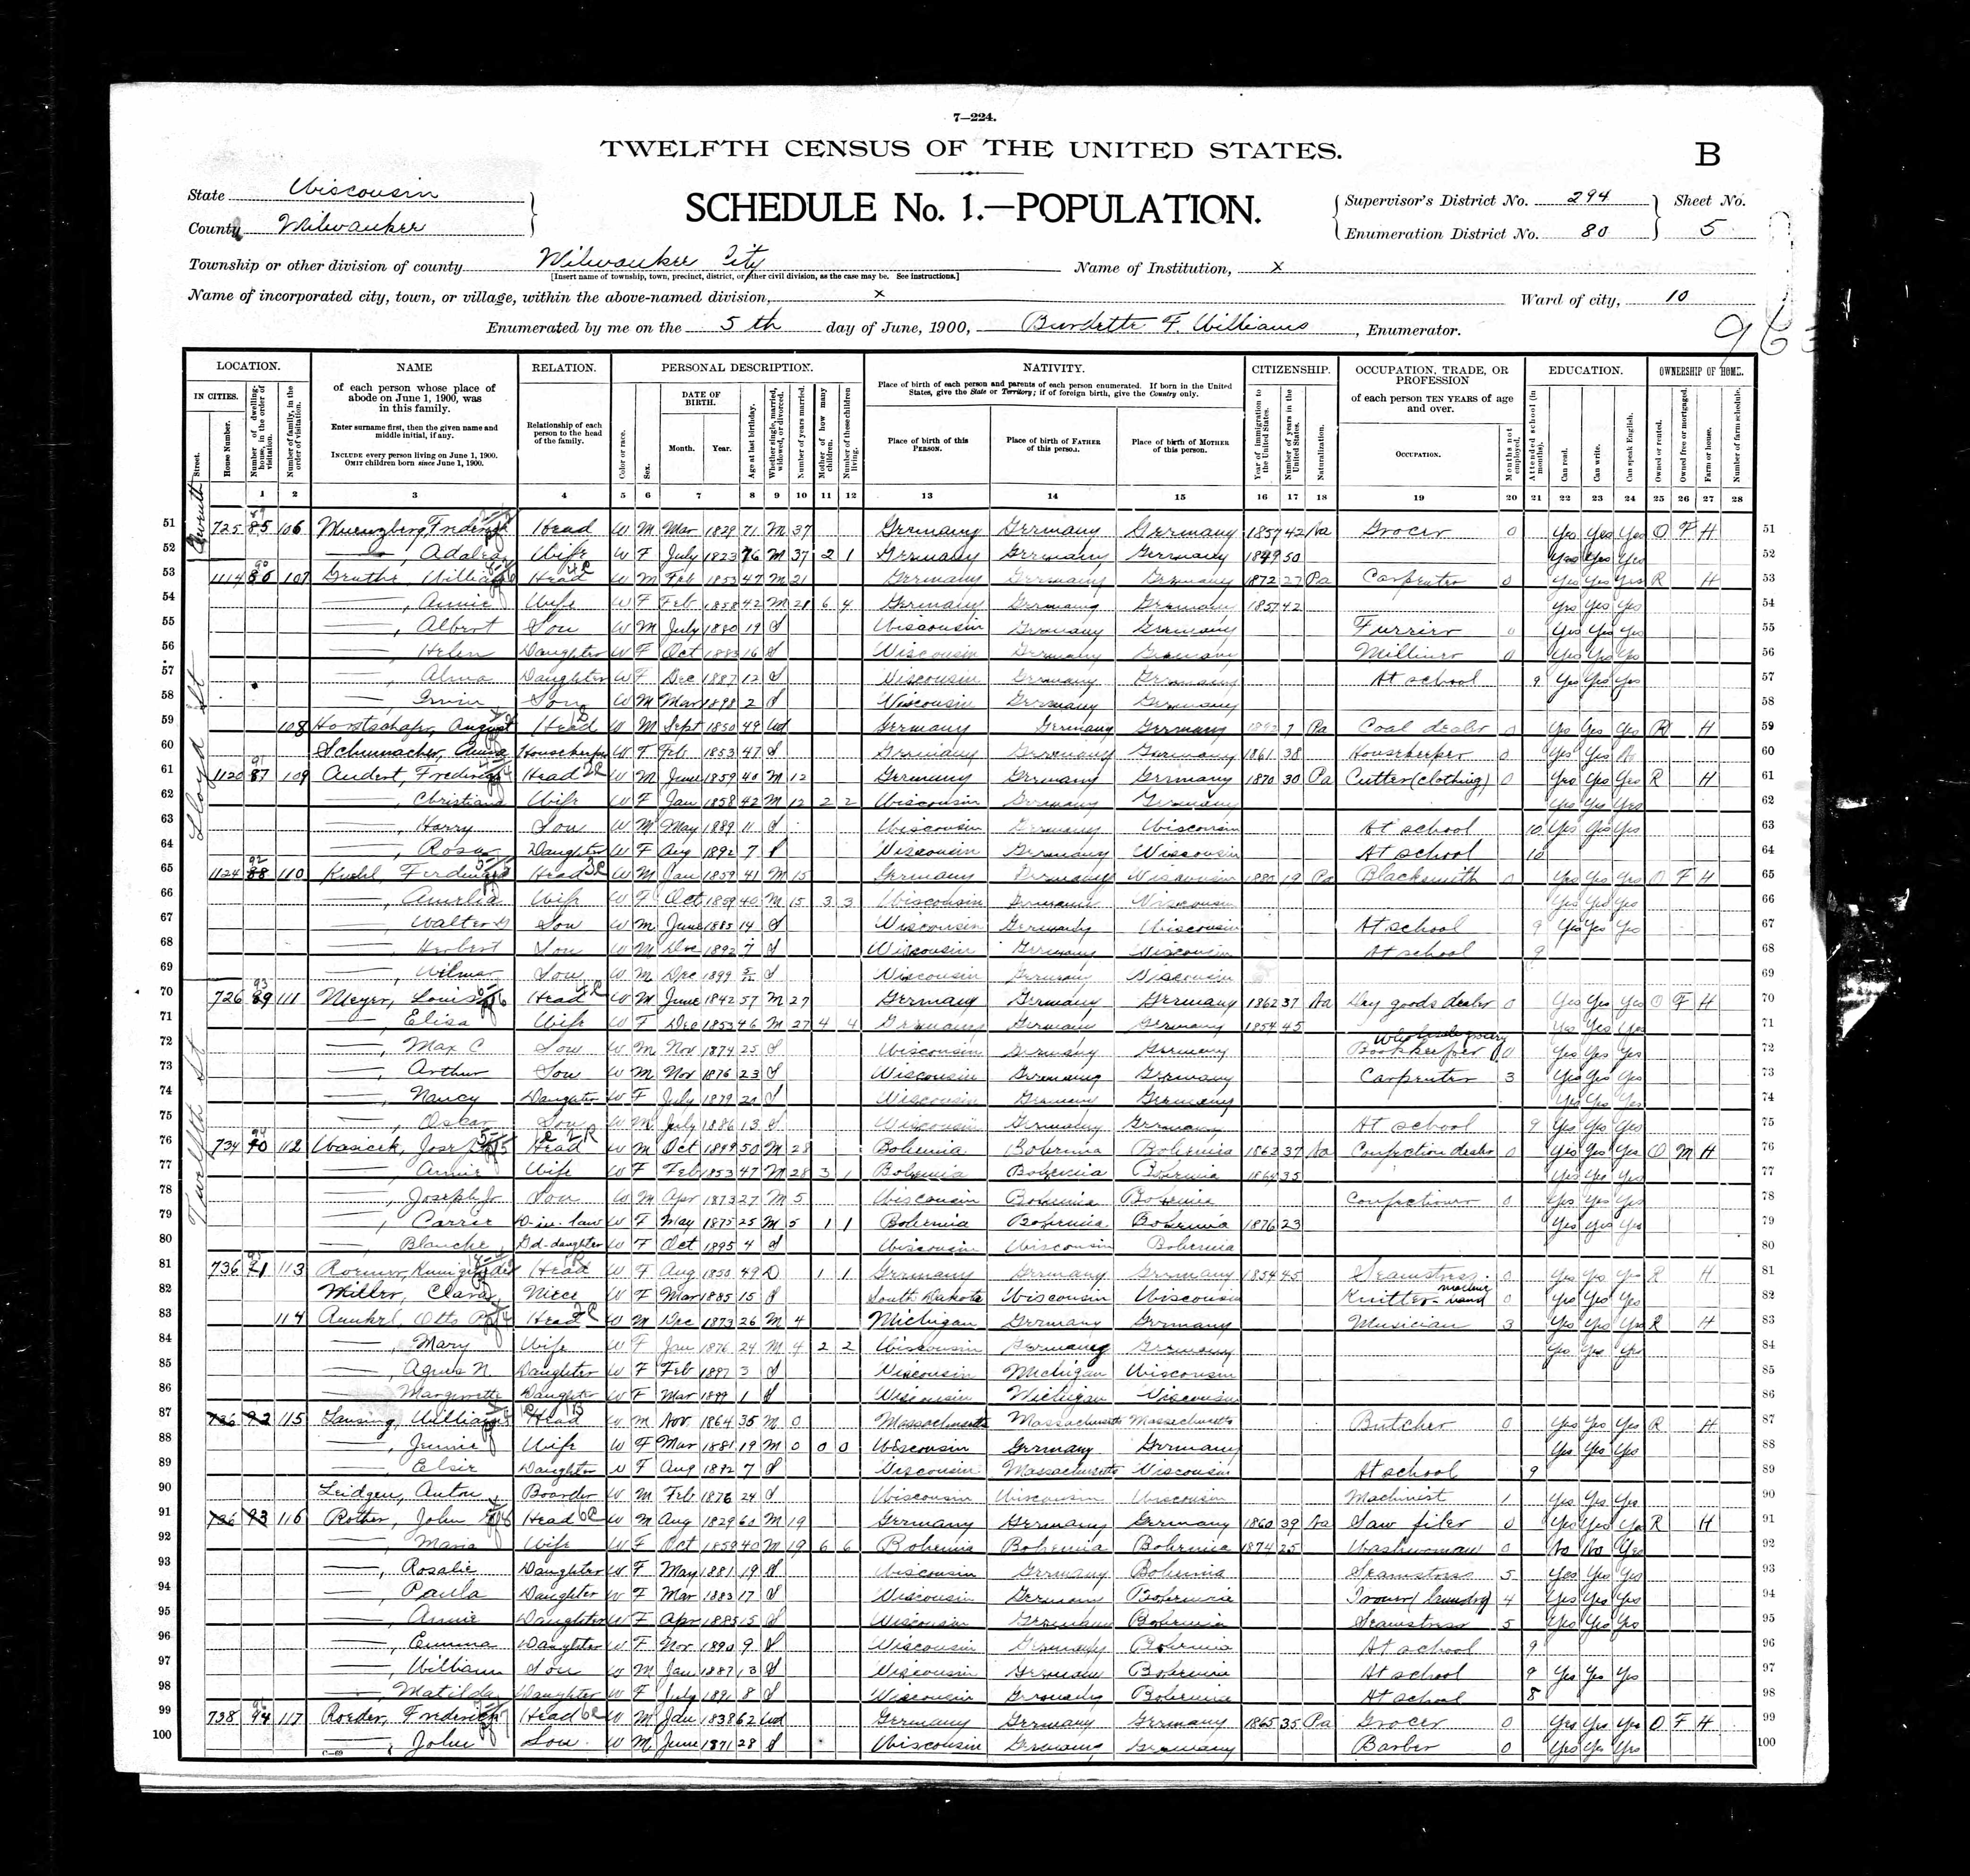 7—224.
TWELFTH CENSUS OF THE UNITED STATES.
B
State Wisconsin
County Milwaukee
SCHEDULE No. 1.—POPULATION.
Supervisor's District No. 294
Enumeration District No. 80
Sheet No. 5
Township or other division of county Milwaukee City
[Insert name of township, town, precinct, district, or other civil division, as the case may be. See instructions.]
Name of Institution, X
Name of incorporated city, town, or village, within the above-named division, X
Ward of city, 10
Enumerated by me on the 5th day of June, 1900, Burdette F. Williams, Enumerator.
963
LOCATION. NAME RELATION. PERSONAL DESCRIPTION. NATIVITY. CITIZENSHIP. OCCUPATION, TRADE, OR PROFESSION EDUCATION. OWNERSHIP OF HOME.
IN CITIES.
Street.
House Number.
Number of dwelling-house, in the order of visitation.
Number of family, in the order of visitation.
of each person whose place of abode on June 1, 1900, was in this family.
Enter surname first, then the given name and middle initial, if any.
INCLUDE every person living on June 1, 1900. OMIT children born since June 1, 1900.
Relationship of each person to the head of the family.
Color or race.
Sex.
DATE OF BIRTH.
Month. Year.
Age at last birthday.
Whether single, married, widowed, or divorced.
Number of years married.
Mother of how many children.
Number of these children living.
Place of birth of each person and parents of each person enumerated. If born in the United States, give the State or Territory; if of foreign birth, give the Country only.
Place of birth of this PERSON.
Place of birth of FATHER of this person.
Place of birth of MOTHER of this person.
Year of immigration to the United States.
Number of years in the United States.
Naturalization.
of each person TEN YEARS of age and over.
OCCUPATION.
Months not employed.
Attended school (in months).
Can read.
Can write.
Can speak English.
Owned or rented.
Owned free or mortgaged.
Farm or house.
Number of farm schedule.
1 2 3 4 5 6 7 8 9 10 11 12 13 14 15 16 17 18 19 20 21 22 23 24 25 26 27 28
Lloyd St
Twelfth St
51 725 85 106 Muenzberg, Head W M Mar 1829 71 M 37 Germany Germany Germany 1857 42 Na Grocer 0 Yes Yes Yes O F H 51
52 Wife W F July 1823 76 M 37 2 1 Germany Germany Germany 1849 50 Yes Yes Yes 52
53 1114 86 107 William Head W M Feb 1853 47 M 21 Germany Germany Germany 1872 27 Pa Carpenter 0 Yes Yes Yes R H 53
54 Annie Wife W F Feb 1858 42 M 21 6 4 Germany Germany Germany 1857 42 Yes Yes Yes 54
55 Albert Son W M July 1880 19 S Wisconsin Germany Germany Furrier 0 Yes Yes Yes 55
56 Helen Daughter W F Oct 1883 16 S Wisconsin Germany Germany Milliner 0 Yes Yes Yes 56
57 Alma Daughter W F Dec 1887 12 S Wisconsin Germany Germany At school 9 Yes Yes Yes 57
58 Irwin Son W M Mar 1898 2 S Wisconsin Germany Germany 58
59 108 August Head W M Sept 1850 49 Wd Germany Germany Germany 7 Pa Coal dealer 0 Yes Yes Yes R H 59
60 Schumacher, Anna Housekeeper W F Feb 1853 47 S Germany Germany Germany 1861 38 Housekeeper 0 Yes Yes 60
61 1120 87 109 Head W M June 1859 40 M 12 Germany Germany Germany 1870 30 Pa Cutter (clothing) 0 Yes Yes Yes R H 61
62 Christiana Wife W F Jan 1858 42 M 12 2 2 Wisconsin Germany Germany Yes Yes Yes 62
63 Harry Son W M May 1889 11 S Wisconsin Germany Wisconsin At school 10 Yes Yes Yes 63
64 Daughter W F Aug 1892 7 S Wisconsin Germany Wisconsin At school 10 64
65 1124 88 110 Kuehl, Ferdinand Head W M Jan 1859 41 M 15 Germany Germany Wisconsin 1880 19 Pa Blacksmith 0 Yes Yes Yes O F H 65
66 Amelia Wife W F Oct 1859 40 M 15 3 3 Wisconsin Germany Wisconsin Yes Yes Yes 66
67 Walter Son W M June 1885 14 S Wisconsin Germany Wisconsin At school 9 Yes Yes Yes 67
68 Herbert Son W M Dec 1892 7 S Wisconsin Germany Wisconsin At school 9 68
69 Wilmar Son W M Dec 1899 5/12 S Wisconsin Germany Wisconsin 69
70 726 89 111 Meyer, Louis Head W M June 1842 57 M 27 Germany Germany Germany 1862 37 Na Dry goods dealer 0 Yes Yes Yes O F H 70
71 Elisa Wife W F Dec 1853 46 M 27 4 4 Germany Germany Germany 1854 45 Yes Yes Yes 71
72 Max C Son W M Nov 1874 25 S Wisconsin Germany Germany Bookkeeper Wholesale grocery 0 Yes Yes Yes 72
73 Arthur Son W M Nov 1876 23 S Wisconsin Germany Germany Carpenter 3 Yes Yes Yes 73
74 Nancy Daughter W F July 1879 20 S Wisconsin Germany Germany Yes Yes Yes 74
75 Oscar Son W M July 1886 13 S Wisconsin Germany Germany At school 9 Yes Yes Yes 75
76 734 90 112 Wasicek, Head W M Oct 1849 50 M 28 Bohemia Bohemia Bohemia 1862 37 Na Confection dealer 0 Yes Yes Yes O M H 76
77 Annie Wife W F Feb 1853 47 M 28 3 1 Bohemia Bohemia Bohemia 1864 35 Yes Yes Yes 77
78 Joseph Jr Son W M Apr 1873 27 M 5 Wisconsin Bohemia Bohemia Confectioner 0 Yes Yes Yes 78
79 Carrie D-in-law W F May 1875 25 M 5 1 1 Bohemia Bohemia Bohemia 1876 23 Yes Yes Yes 79
80 Blanche Gd-daughter W F Oct 1895 4 S Wisconsin Wisconsin Bohemia 80
81 736 91 113 Head W F Aug 1850 49 D 1 1 Germany Germany Germany 1854 45 Seamstress 0 Yes Yes Yes R H 81
82 Miller, Clara Niece W F Mar 1885 15 S South Dakota Wisconsin Wisconsin Knitter - machine hand 0 Yes Yes Yes 82
83 114 Otto Head W M Dec 1873 26 M 4 Michigan Germany Germany Musician 3 Yes Yes Yes R H 83
84 Mary Wife W F Jan 1876 24 M 4 2 2 Wisconsin Germany Germany Yes Yes Yes 84
85 Agnes N. Daughter W F Feb 1897 3 S Wisconsin Michigan Wisconsin 85
86 Daughter W F Mar 1899 1 S Wisconsin Michigan Wisconsin 86
87 736 92 115 Lansing, William Head W M Nov 1864 35 M 0 Massachusetts Massachusetts Massachusetts Butcher 0 Yes Yes Yes R H 87
88 Jennie Wife W F Mar 1881 19 M 0 0 0 Wisconsin Germany Germany Yes Yes Yes 88
89 Elsie Daughter W F Aug 1892 7 S Wisconsin Massachusetts Wisconsin At school 9 89
90 Leidgen, Anton Boarder W M Feb 1876 24 S Wisconsin Wisconsin Wisconsin Machinist 1 Yes Yes Yes 90
91 736 93 116 Rother, John Head W M Aug 1829 M 19 Germany Germany Germany 1860 39 Na Saw filer 0 Yes Yes Yes R H 91
92 Maria Wife W F Oct 1859 40 M 19 6 6 Bohemia Bohemia Bohemia 1874 25 Washwoman 0 No No Yes 92
93 Rosalie Daughter W F May 1881 19 S Wisconsin Germany Bohemia Seamstress 5 Yes Yes Yes 93
94 Paula Daughter W F Mar 1883 17 S Wisconsin Germany Bohemia Ironer (laundry) 4 Yes Yes Yes 94
95 Annie Daughter W F Apr 1885 15 S Wisconsin Germany Bohemia Seamstress 5 Yes Yes Yes 95
96 Emma Daughter W F Nov 1890 9 S Wisconsin Germany Bohemia At school 9 96
97 William Son W M Jan 1887 13 S Wisconsin Germany Bohemia At school 9 Yes Yes Yes 97
98 Matilda Daughter W F July 1891 8 S Wisconsin Germany Bohemia At school 8 98
99 738 94 117 Roeder, Frederick Head W M Jan 1838 62 Wd Germany Germany Germany 1865 35 Pa Grocer 0 Yes Yes Yes O F H 99
100 John Son W M June 1871 28 S Wisconsin Germany Germany Barber 0 Yes Yes Yes 100
C—69